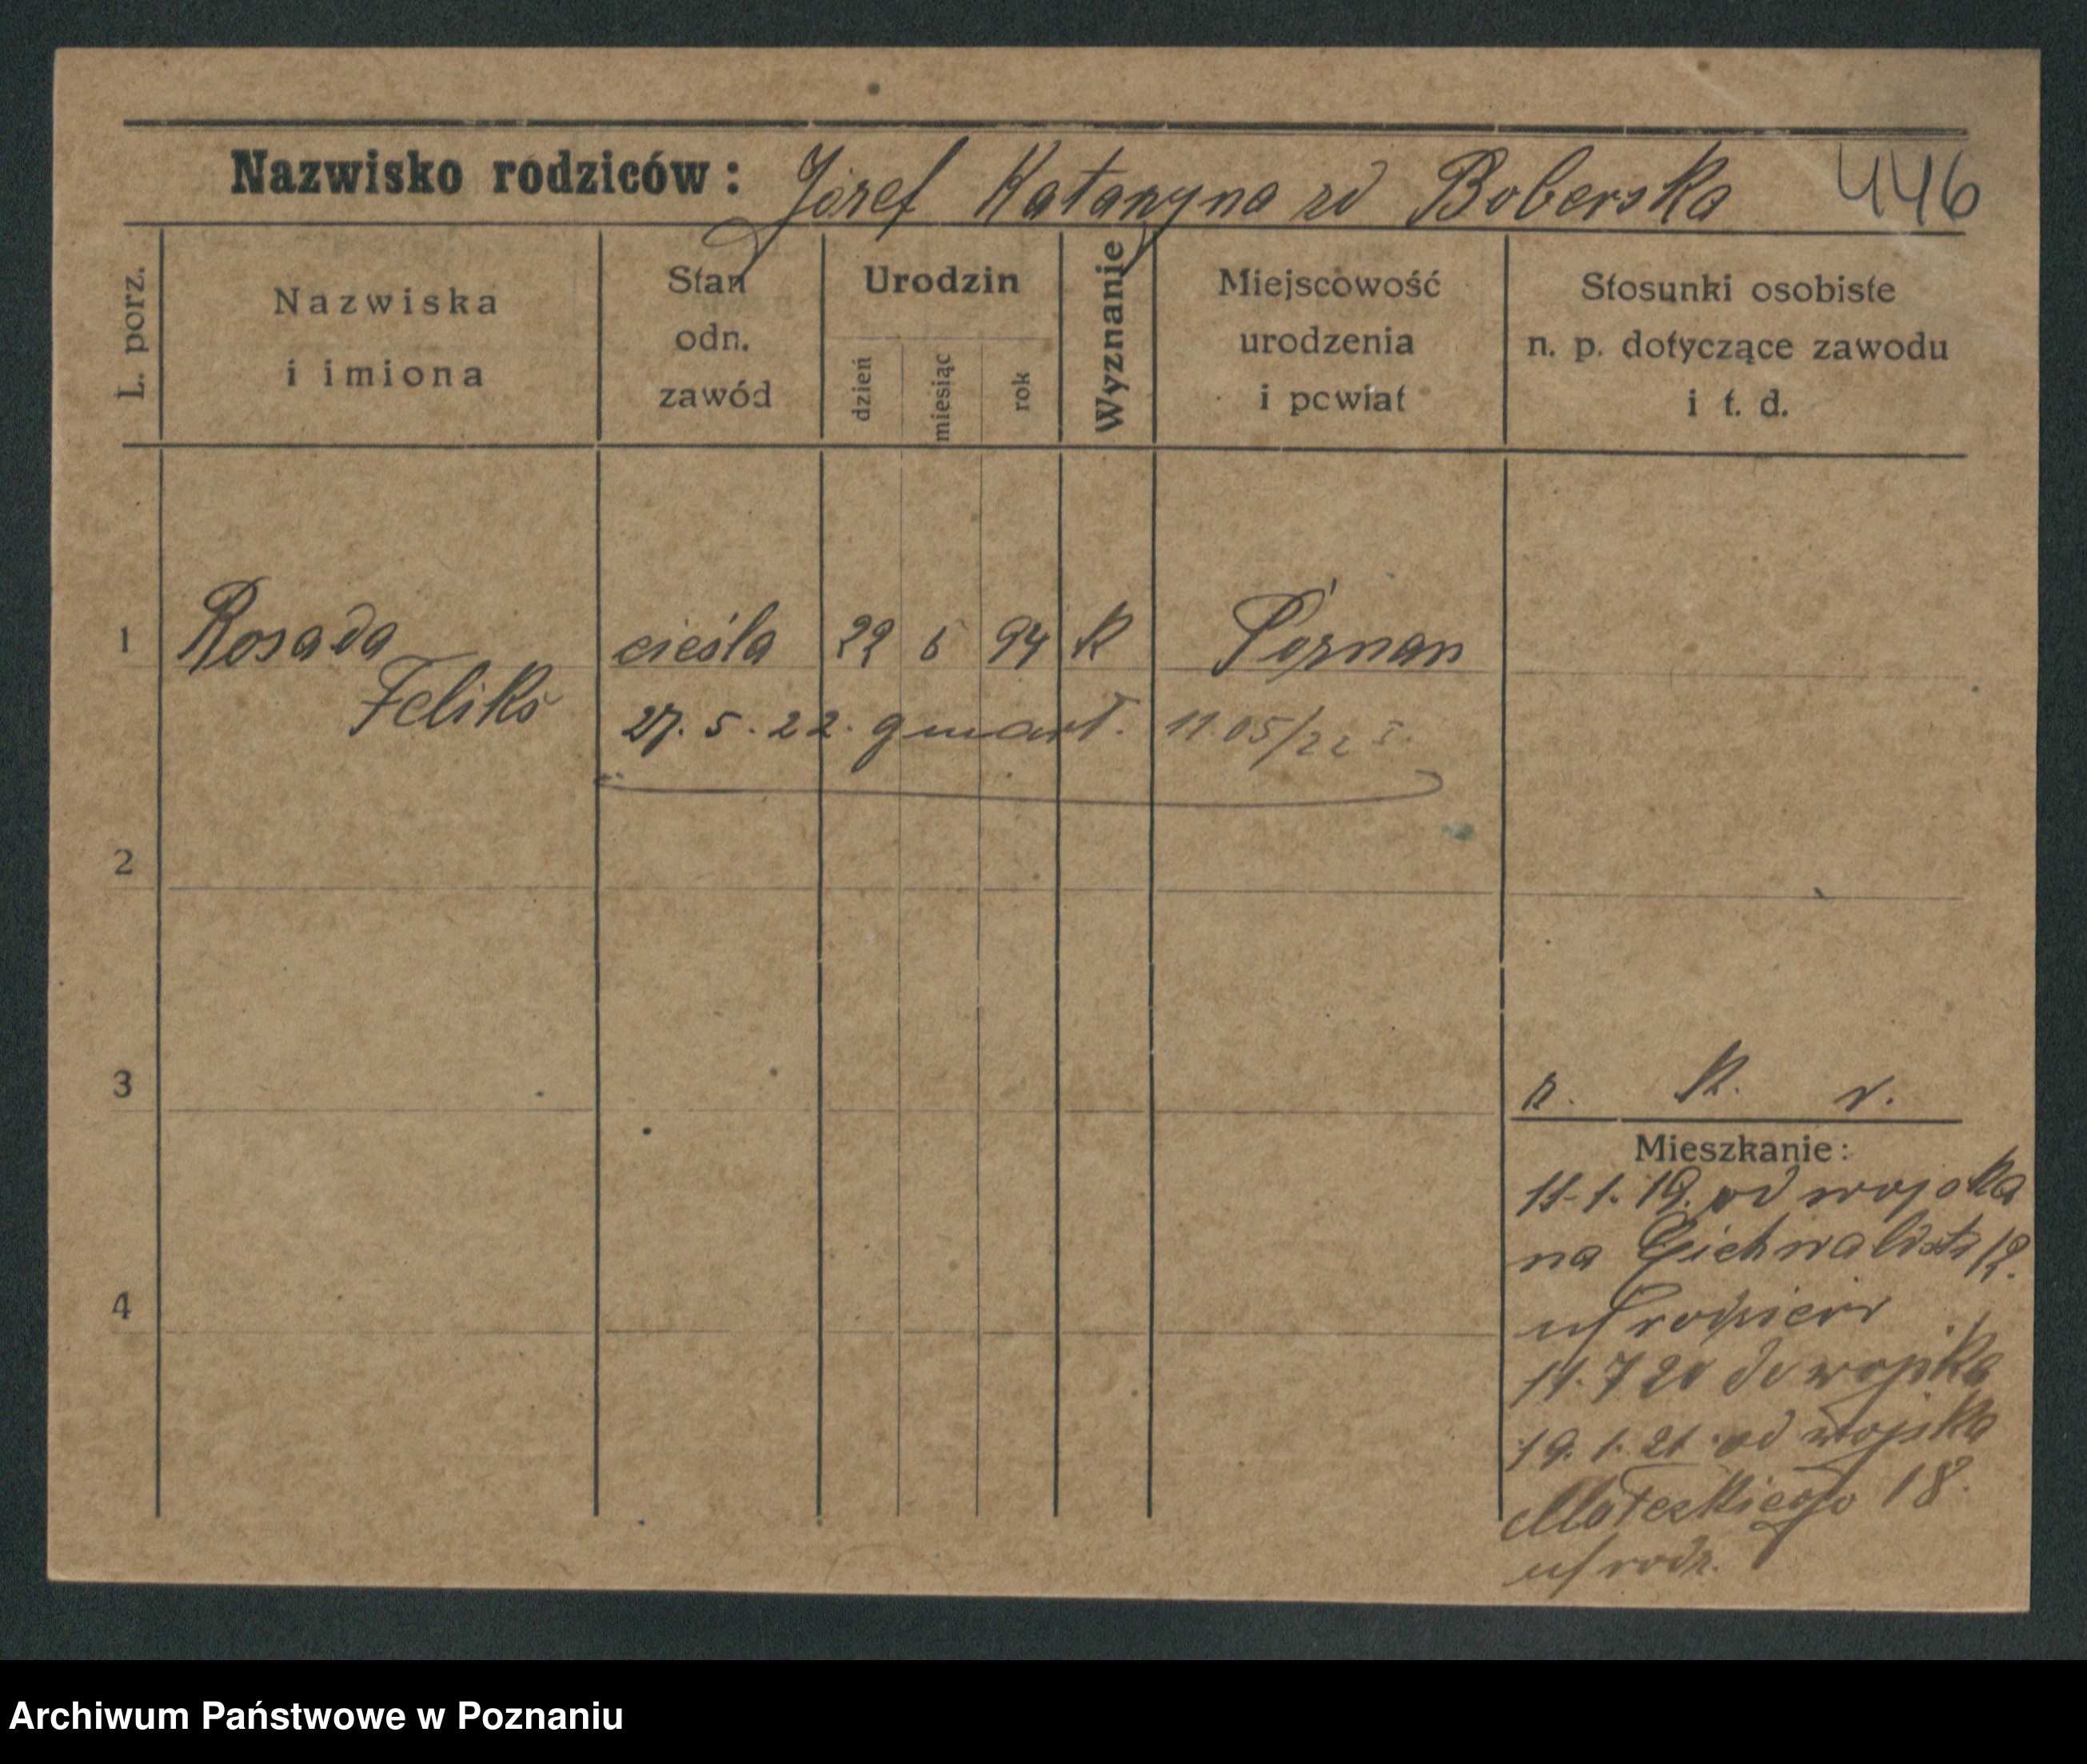 Nazwisko rodziców: Józef Katarzyna zd Boberska 446
L. porz.
Nazwiska i imiona
Stan odn. zawód
Urodzin
dzień
miesiąc
rok
Wyznanie
Miejscowość urodzenia i powiat
Stosunki osobiste n. p. dotyczące zawodu i t. d.
1 Rosada cieśla 22 5 94 k Poznan
Feliks 27. 5. 22. zmart. 11.05/22
2
3
r. k. v.
Mieszkanie:
11.1.19. od wojska
na
4
u/
11.7 20 do wojska
19.1.21 od wojska
18.
u/ rodz.
Archiwum Państwowe w Poznaniu